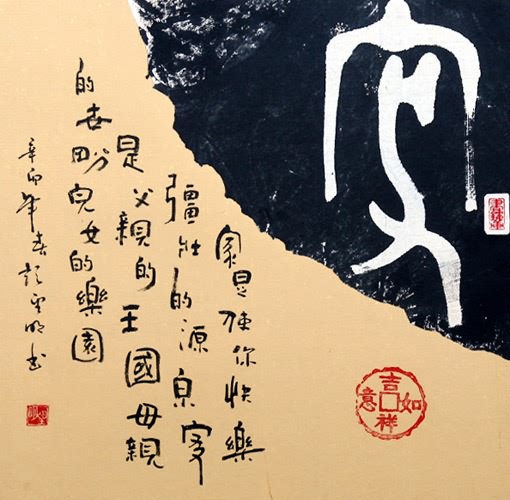 家
家是使你快樂
彊壯的源泉家
是父親的王國母親
的世畍兒女的樂園
辛卯年春
吉祥如意